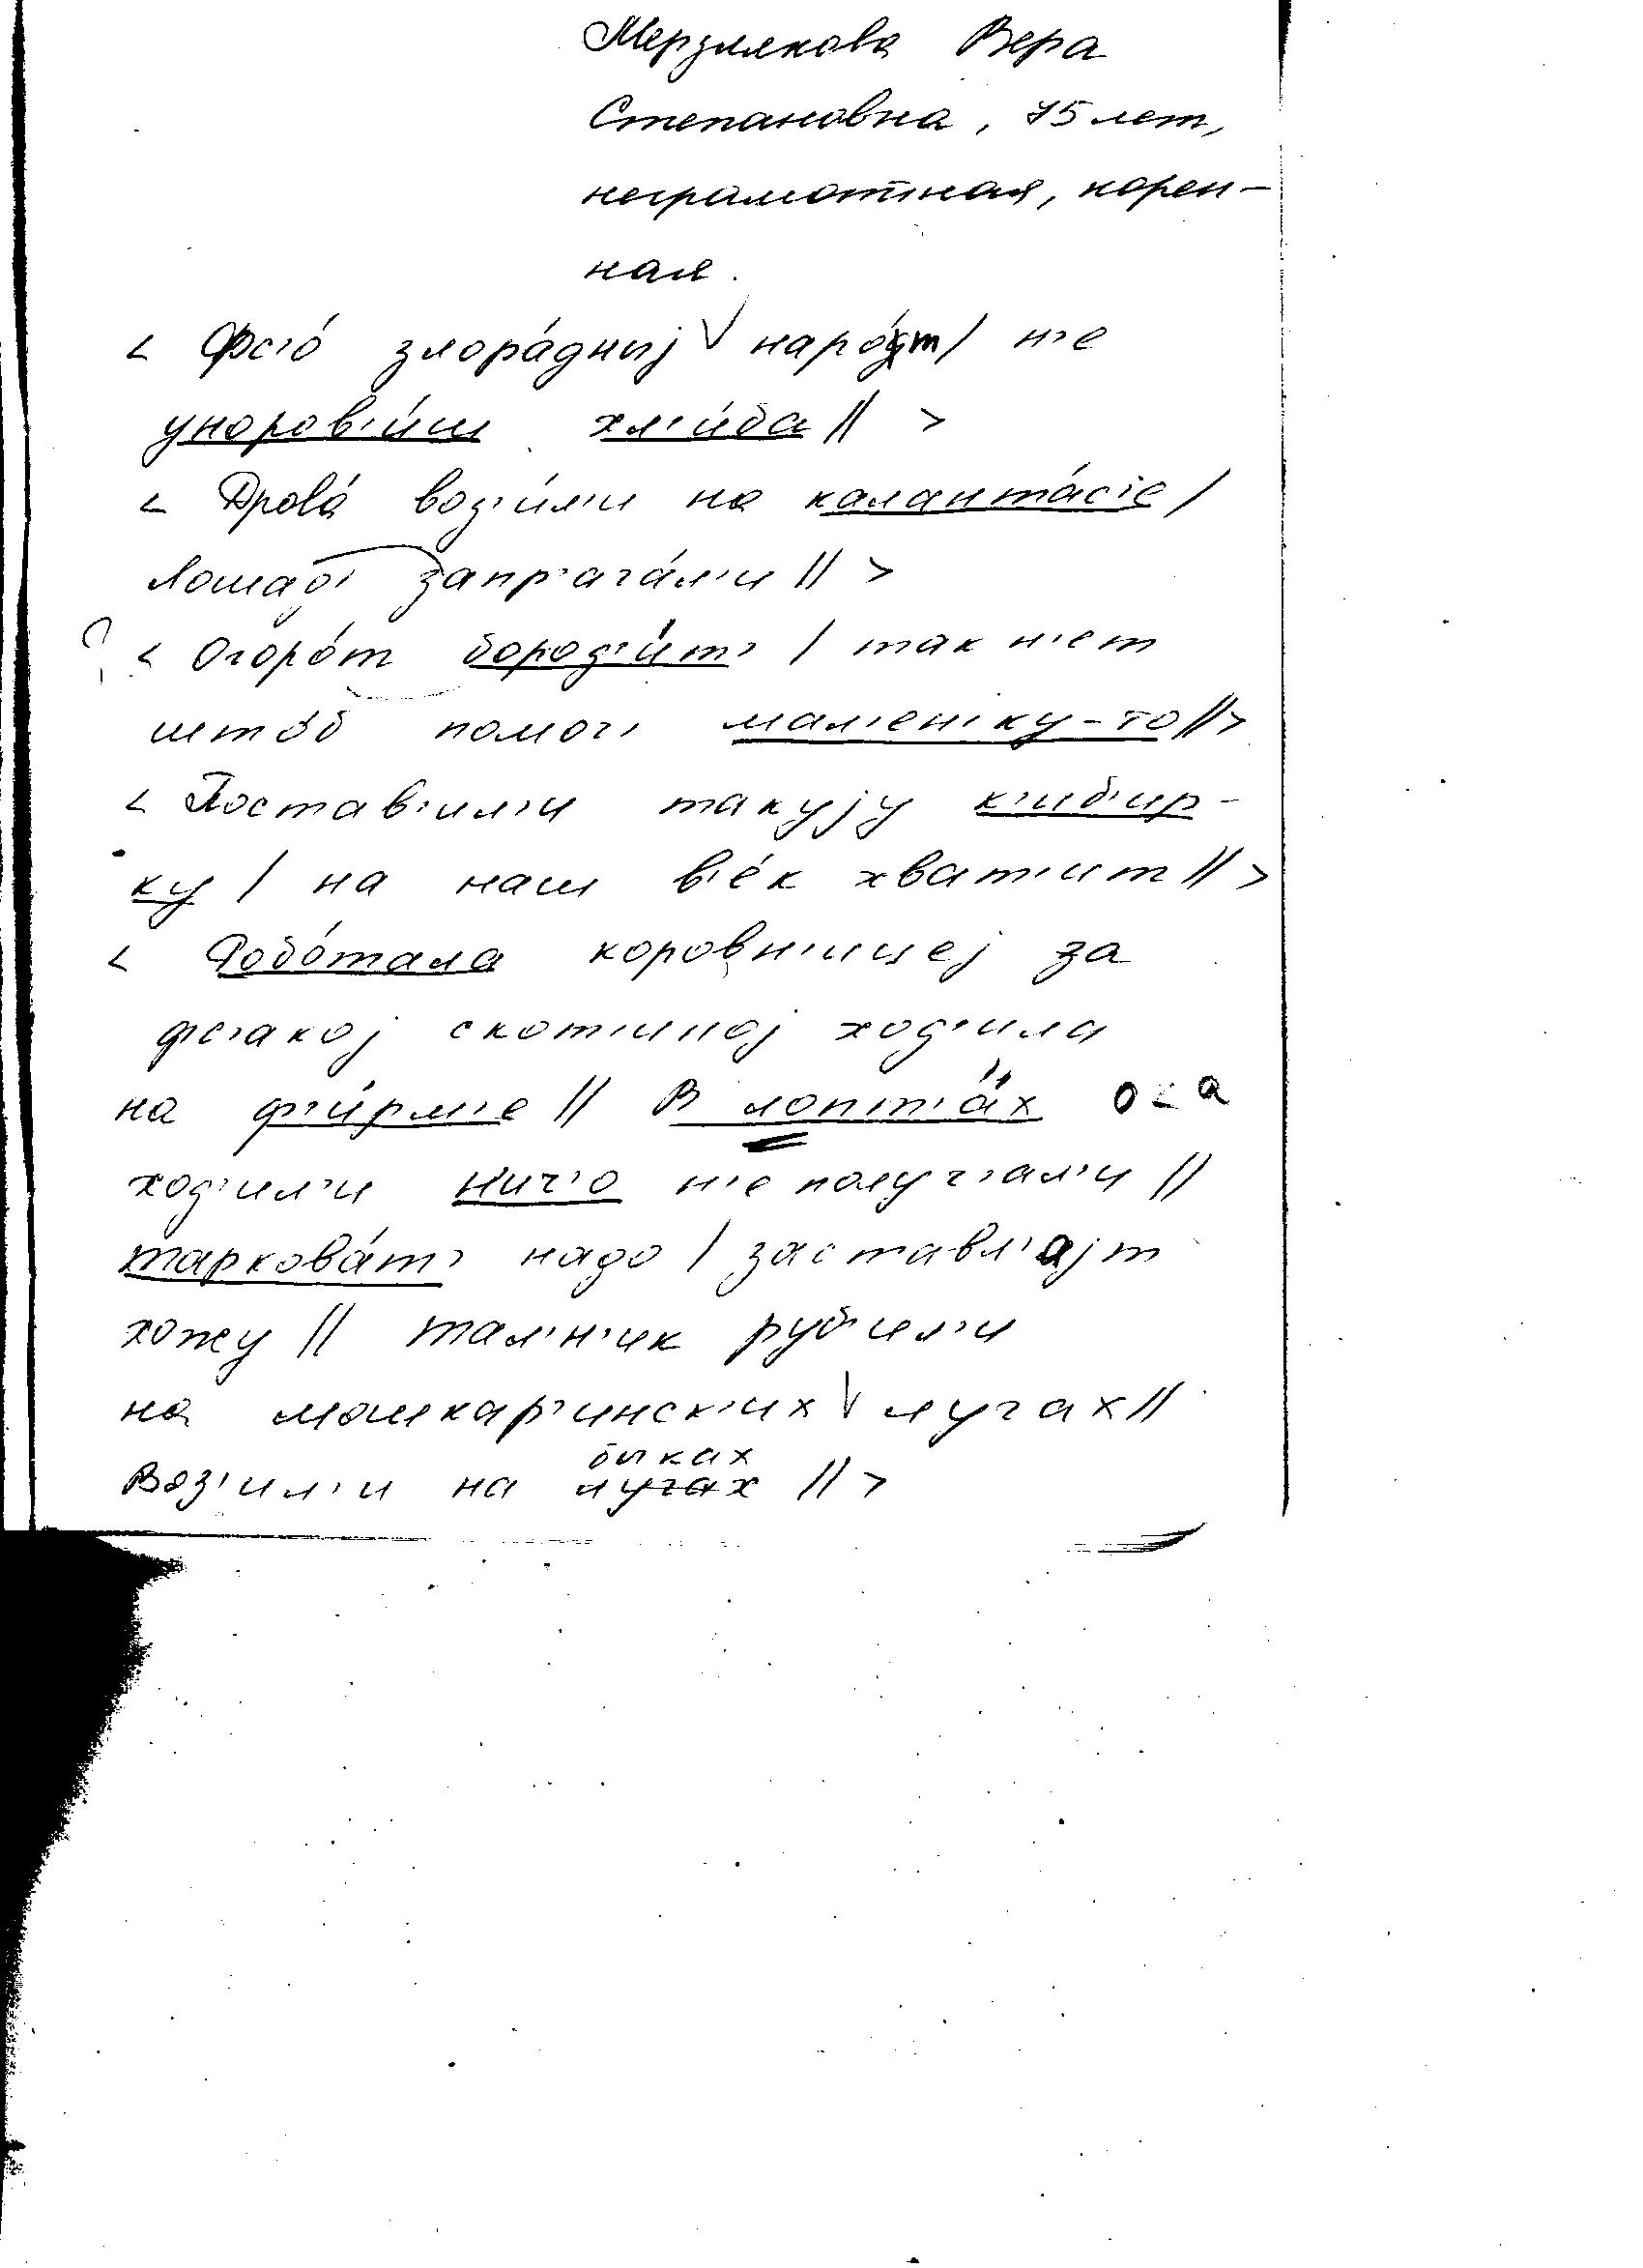 Мерзлякова Вера
Степановна, 75 лет,
неграмотная, корен-
ная.
< Фс'о́ злора́дныj наро́т / н'е
уноров'и́ш хл'и́ба // >
< Дрова́ воз'и́л'и на калантáс'е /
Лошад' запр'ага́л'и // >
? < Огоро́т бород'и́т' / так н'ет
што́б помог' мал'ен'ку-то // >
< Постав'ил'и такуjу к'иб'ир-
ку / на наш в'е́к хват'ит // >
< Робо́тала коровн'ицеj за
фс'акоj скот'иноj ход'ила
на ф'и́рм'е // В лопт'а́х о-а
ход'ил'и нич'о н'е получ'ал'и //
таркова́т' надо / заставл'аjт
хожу // тал'н'ик руб'ил'и
на мошкар'инск'их лугах //
быках
Воз'ил'и на лугах // >